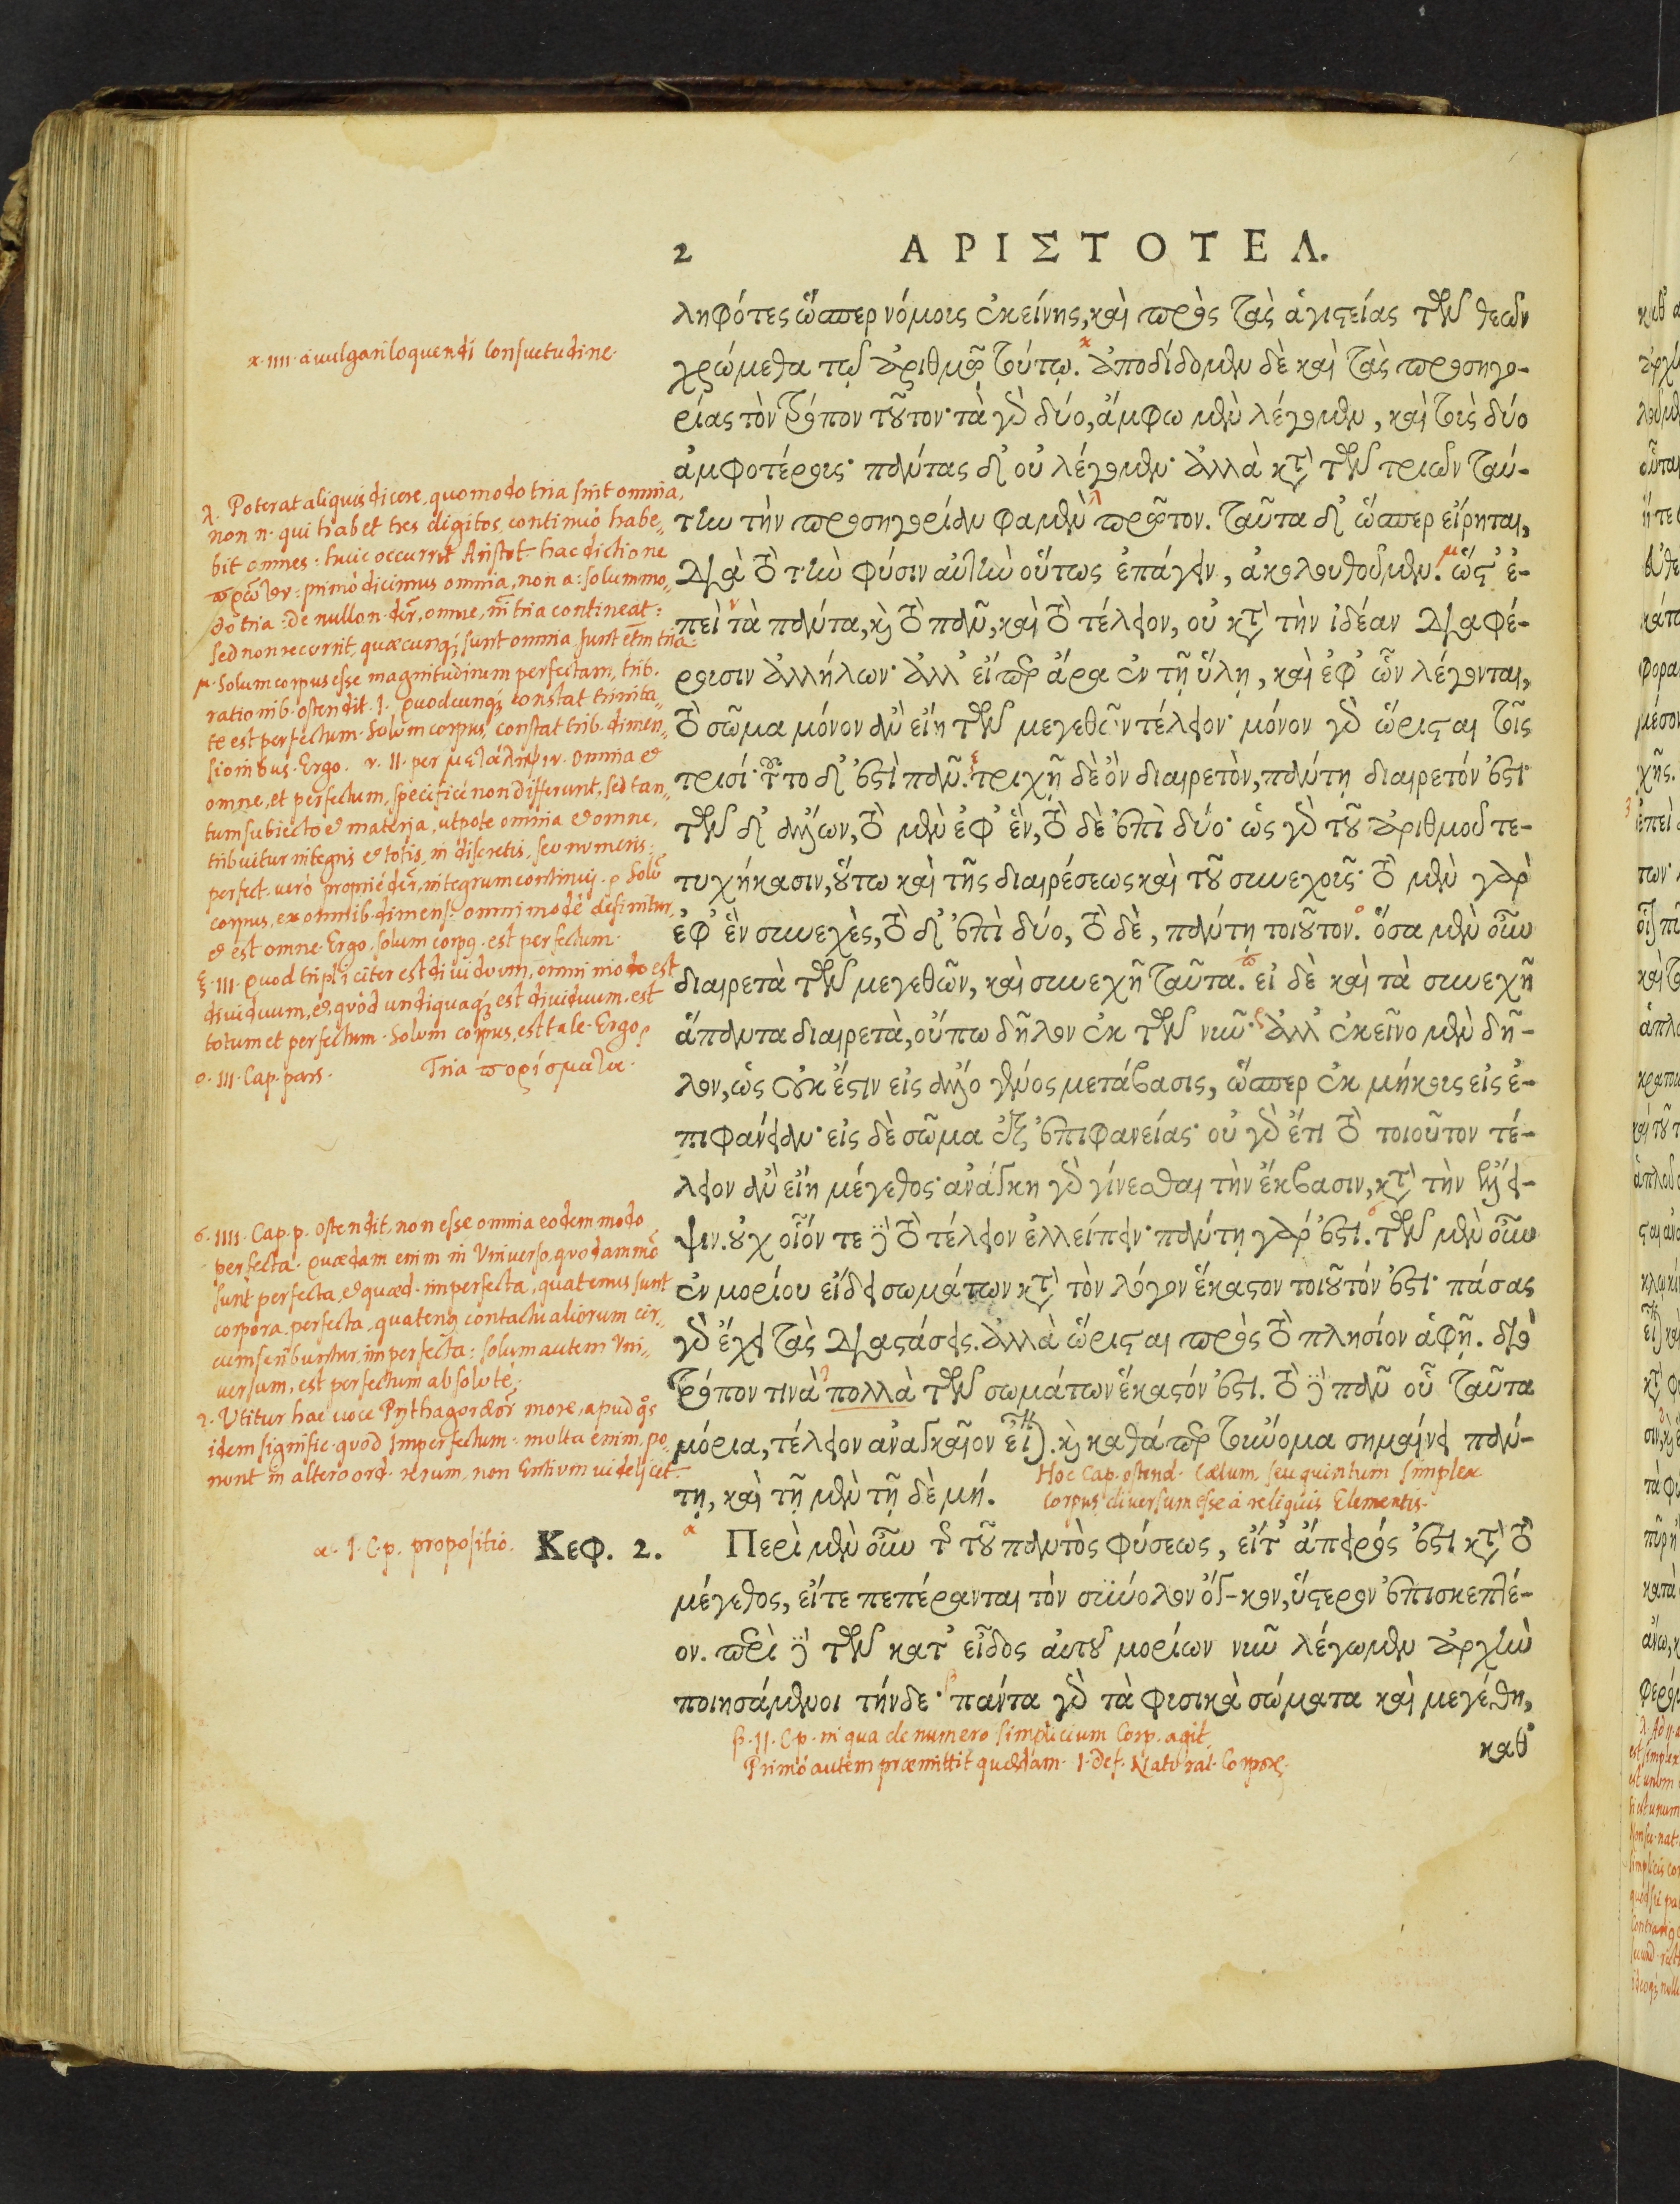 2 ΑΡΙΣΤΟΤΕΛ.
ληφότες ὥσπερ νόμους ἐκείνης, καὶ πρὸς τὰς ἁγιστείας τῶν θεῶν
χρώμεθα τῷ ἀριθμῷ τούτῳ. ἀποδίδομεν δὲ καὶ τὰς προσηγο-
ρίας τὸν τρόπον τοῦτον· τὰ γὰρ δύο, ἄμφω μὲν λέγομεν, καὶ τοὺς δύο
ἀμφοτέρους· πάντας δ' οὐ λέγομεν· ἀλλὰ κατὰ τῶν τριῶν ταύ-
την τὴν προσηγορίαν φαμὲν πρῶτον. ταῦτα δ' ὥσπερ εἴρηται,
διὰ τὸ τὴν φύσιν αὐτὴν οὕτως ἐπάγειν, ἀκολουθοῦμεν. ὥστ' ἐ-
πεὶ τὰ πάντα, καὶ τὸ πᾶν, καὶ τὸ τέλειον, οὐ κατὰ τὴν ἰδέαν διαφέ-
ρουσιν ἀλλήλων· ἀλλ' εἴπερ ἄρα ἐν τῇ ὕλῃ, καὶ ἐφ' ὧν λέγονται,
τὸ σῶμα μόνον ἂν εἴη τῶν μεγεθῶν τέλειον· μόνον γὰρ ὥρισται τοῖς
τρισί· τοῦτο δ' ἐστὶ πᾶν. τριχῇ δὲ ὂν διαιρετὸν, πάντῃ διαιρετόν ἐστι·
τῶν δ' ἄλλων, τὸ μὲν ἐφ' ἓν, τὸ δὲ ἐπὶ δύο· ὡς γὰρ τοῦ ἀριθμοῦ τε-
τυχήκασιν, οὕτω καὶ τῆς διαιρέσεως καὶ τοῦ συνεχοῦς· τὸ μὲν γὰρ
ἐφ' ἓν συνεχὲς, τὸ δ' ἐπὶ δύο, τὸ δὲ, πάντῃ τοιοῦτον. ὅσα μὲν οὖν
διαιρετὰ τῶν μεγεθῶν, καὶ συνεχῆ ταῦτα. εἰ δὲ καὶ τὰ συνεχῆ
ἅπαντα διαιρετὰ, οὔπω δῆλον ἐκ τῶν νῦν· ἀλλ' ἐκεῖνο μὲν δῆ-
λον, ὡς οὐκ ἔστιν εἰς ἄλλο γένος μετάβασις, ὥσπερ ἐκ μήκους εἰς ἐ-
πιφάνειαν· εἰς δὲ σῶμα ἐξ ἐπιφανείας· οὐ γὰρ ἔτι τὸ τοιοῦτον τέ-
λειον ἂν εἴη μέγεθος· ἀνάγκη γὰρ γίνεσθαι τὴν ἔκβασιν, κατὰ τὴν ἔλλει-
ψιν. οὐχ οἷόν τε δὲ τὸ τέλειον ἐλλείπειν· πάντῃ γάρ ἐστι. τῶν μὲν οὖν
ἐν μορίου εἴδει σωμάτων κατὰ τὸν λόγον ἕκαστον τοιοῦτόν ἐστι· πάσας
γὰρ ἔχει τὰς διαστάσεις. ἀλλὰ ὥρισται πρὸς τὸ πλησίον ἁφῇ. διὸ
τρόπον τινὰ πολλὰ τῶν σωμάτων ἕκαστόν ἐστι. τὸ δὲ πᾶν οὗ ταῦτα
μόρια, τέλειον ἀναγκαῖον εἶναι. καὶ καθάπερ τοὔνομα σημαίνει πάν-
τῃ, καὶ μὴ τῇ μὲν τῇ δὲ μή.
Κεφ. 2. Περὶ μὲν οὖν τῆς τοῦ παντὸς φύσεως, εἴτ' ἄπειρός ἐστι κατὰ τὸ
μέγεθος, εἴτε πεπέρανται τὸν σύνολον ὄγκον, ὕστερον ἐπισκεπτέ-
ον. περὶ δὲ τῶν κατ' εἶδος αὐτοῦ μορίων νῦν λέγωμεν ἀρχὴν
ποιησάμενοι τήνδε· πάντα γὰρ τὰ φυσικὰ σώματα καὶ μεγέθη,
καθ'
κ. IIII. à vulgari loquendi consuetudine.
λ. Poterat aliquis dicere, quomodo tria sint omnia,
non n. qui habet tres digitos, continuò habe-
bit omnes: huic occurrit Aristot. hac dictione
πρῶτον: primò dicimus omnia, non a: solummo-
dò tria: De nullo n. dr̃, omne, nĩ tria contineat:
sed non recurrit, quæcunq; sunt omnia, sunt etm̃ tria.
μ. Solum corpus esse magnitudinum perfectam, trib.
rationib. ostendit. I. Quodcunq; constat trinita-
te est perfectum. Solum corpus, constat trib. dimen-
sionibus. Ergo. ν. II. per μετάληψιν. omnia et
omne, et perfectum, specificè non differunt, sed tan-
tum subiecto et materia, utpote omnia et omne,
tribuitur integris et totis, in discretis, seu numeris:
perfect. verò propriè dr̃, integrum continuj. Solũ
corpus, ex omnib. dimens. omnimodè definitur,
et est omne. Ergo. solum corpq. est perfectum.
ξ. III. Quod tripliciter est dividuum, omni modo est
dividuum, et quòd undiquaq; est dividuum, est
totum et perfectum. Solum corpus, est tale. Ergo.
ο. III. Cap. pars. Tria πορίσματα.
σ. IIII. Cap. p. ostendit, non esse omnia eodem modo
perfecta. Quædam enim in Universo, quodammõ
sunt perfecta, et quæd. imperfecta, quatenus sunt
corpora, perfecta, quatenq contactu aliorum cir-
cumscribuntur, imperfecta: solum autem Vni-
versum, est perfectum absolutè.
Vtitur hac voce Pythagoræor̃ more, apud q̃s
idem signific. quod Imperfectum: multa enim, po-
nunt in altero ord. rerum, non Entium videlicet.
Hoc Cap. ostend. Cælum, seu quintum simplex
corpus diversum esse à reliquis Elementis.
α. I. C. p. propositio.
β. II. C. p. in qua de numero simplicium Corp. agit.
Primò autem præmittit quædam. I. Def. Natural. Corpor.